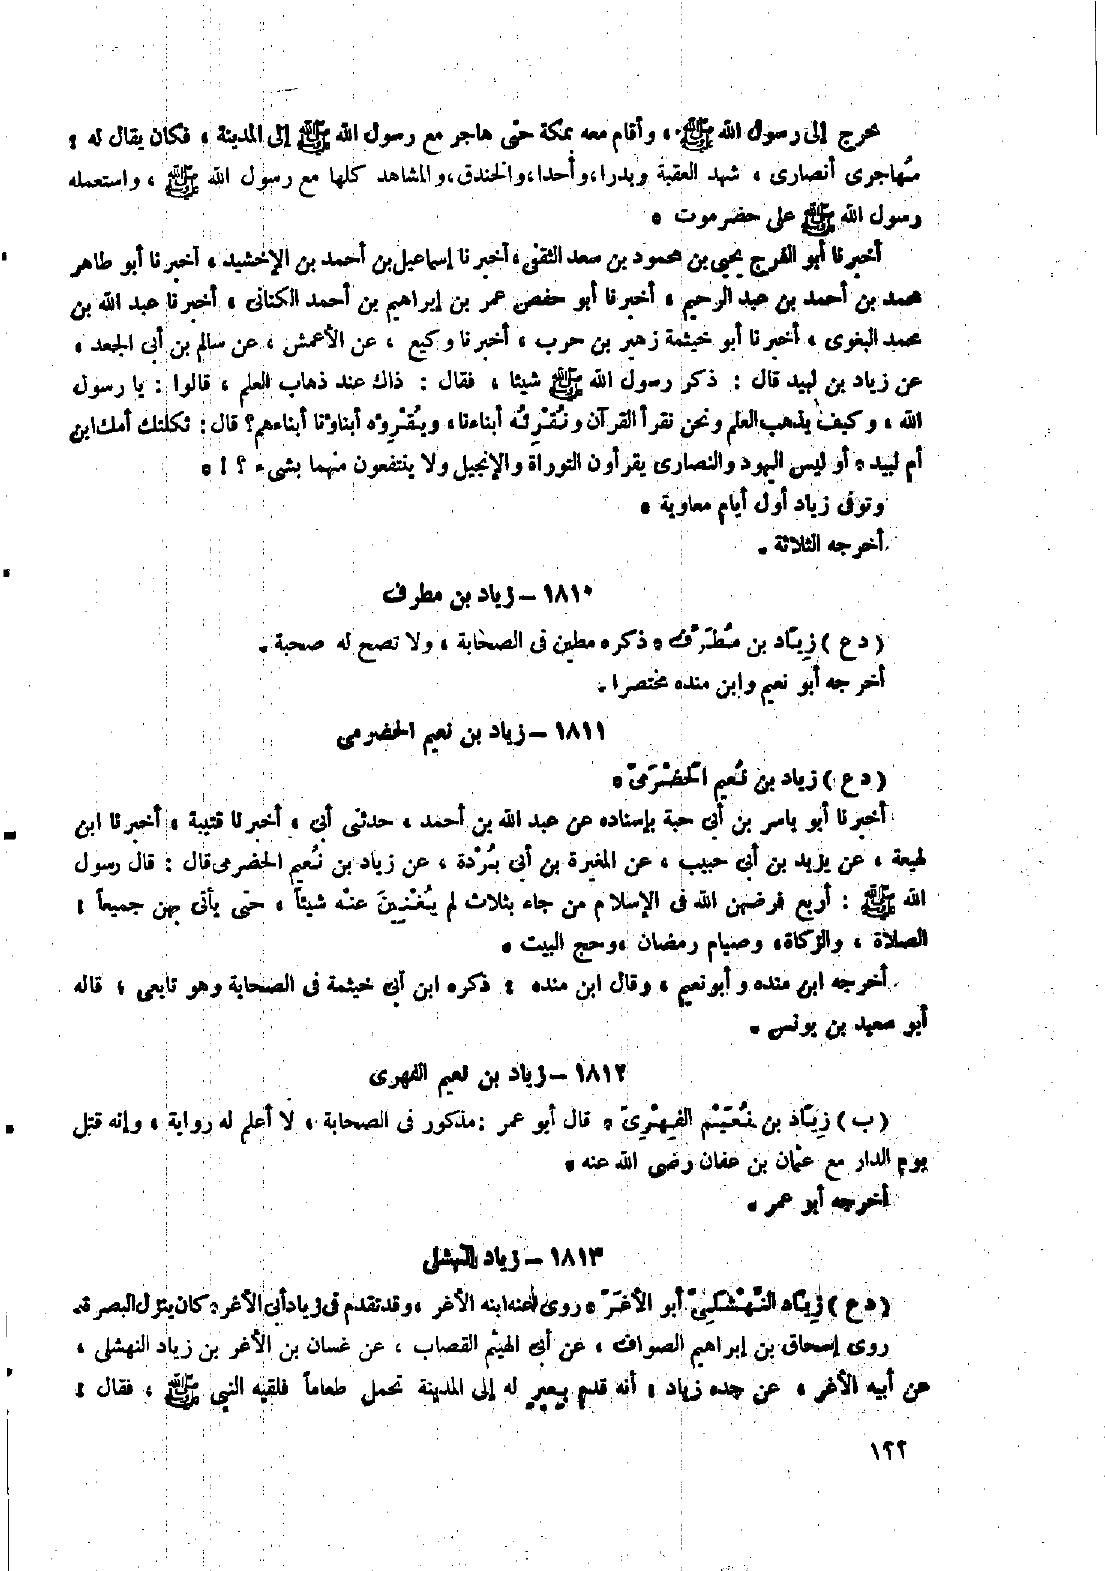 خرج إلى رسول الله ﷺ ، وأقام معه بمكة حتى هاجر مع رسول الله ﷺ إلى المدينة ، فكان يقال له :
مُهاجرى أنصارى ، شهد العقبة وبدرا ، وأحدا ، والخندق ، والمشاهد كلها مع رسول الله ﷺ ، واستعمله
رسول الله ﷺ على حضرموت .
أخبرنا أبو الفرج يحيى بن محمود بن سعد الثقفى ، أخبرنا إسماعيل بن أحمد بن الإخشيد ، أخبرنا أبو طاهر
محمد بن أحمد بن عبد الرحيم ، أخبرنا أبو حفص عمر بن إبراهيم بن أحمد الكنانى ، أخبرنا عبد الله بن
محمد البغوى ، أخبرنا أبو خيثمة زهير بن حرب ، أخبرنا وكيع ، عن الأعمش ، عن سالم بن أبى الجعد ،
عن زياد بن لبيد قال : ذكر رسول الله ﷺ شيئا ، فقال : ذاك عند ذهاب العلم ، قالوا : يا رسول
الله ، وكيف يذهب العلم ونحن نقرأ القرآن ونُقْرِئُه أبناءنا ، ويُقْرِؤه أبناؤنا أبناءهم ؟ قال : ثكلتك أمك ابن
أم لبيد ، أو ليس اليهود والنصارى يقرأون التوراة والإنجيل ولا ينتفعون منهما بشىء ؟ ! .
وتوفى زياد أول أيام معاوية .
أخرجه الثلاثة .
١٨١٠ – زياد بن مطرف
( د ع ) زِيَاد بن مُطَرِّف . ذكره مطين فى الصحابة ، ولا تصح له صحبة .
أخرجه أبو نعيم وابن منده مختصرا .
١٨١١ – زياد بن نعيم الحضرمى
( د ع ) زياد بن نُعيم الحَضْرَمىّ .
أخبرنا أبو ياسر بن أبى حبة بإسناده عن عبد الله بن أحمد ، حدثنى أبى ، أخبرنا قتيبة ، أخبرنا ابن
لهيعة ، عن يزيد بن أبى حبيب ، عن المغيرة بن أبى بُرْدة ، عن زياد بن نُعيم الحضرمى قال : قال رسول
الله ﷺ : أربع فرضهن الله فى الإسلام من جاء بثلاث لم يُغْنِينَ عنْه شيئاً ، حتى يأتى بهن جميعاً :
الصلاة ، والزكاة ، وصيام رمضان ، وحج البيت .
أخرجه ابن منده وأبو نعيم ، وقال ابن منده : ذكره ابن أبى خيثمة فى الصحابة وهو تابعى ، قاله
أبو سعيد بن يونس .
١٨١٢ – زياد بن نعيم الفهرى
( ب ) زِيَاد بن نُعَيْم الفِهْرِىّ . قال أبو عمر : مذكور فى الصحابة ، لا أعلم له رواية ، وإنه قتل
يوم الدار مع عثمان بن عفان رضى الله عنه .
أخرجه أبو عمر .
١٨١٣ – زياد النهشلى
( د ع ) زِيَاد النَّهْشَلِىّ أبو الأغَرّ . روى عنه ابنه الأغر ، وقد تقدم فى زياد أبى الأغر ، كان ينزل البصرة .
روى إسحاق بن إبراهيم الصواف ، عن أبى الهيثم القصاب ، عن غسان بن الأغر بن زياد النهشلى ،
عن أبيه الأغر ، عن جده زياد ، أنه قدم بِعِيرٍ له إلى المدينة تحمل طعاماً فلقيه النبي ﷺ ، فقال :
١٢٢